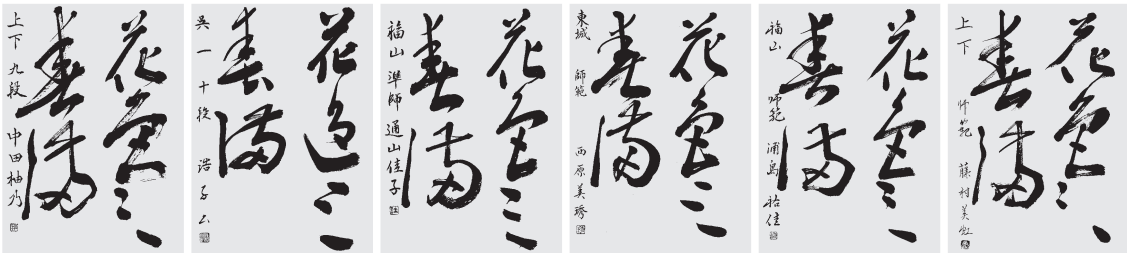 花色三
春満
上下 九段 中田柚乃
花色三
春満
呉一 十段 浩子
花色三
春満
福山 準師 通山佳子
花色三
春満
東城 師範 西原美琇
花色三
春満
福山 師範 浦島裕佳
花色三
春満
上下 师範 藤村美虹